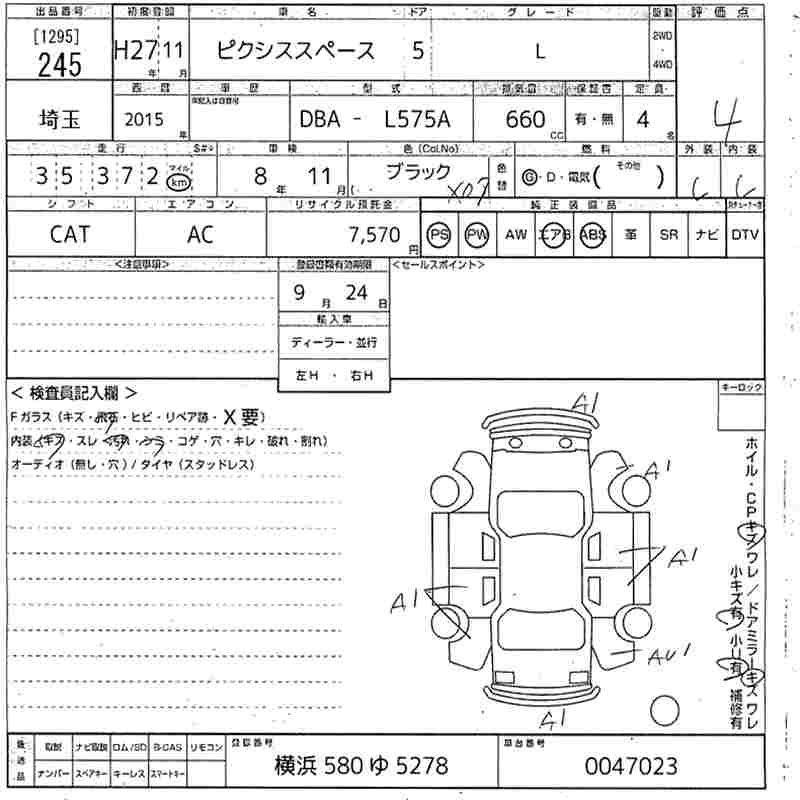 出品番号 初度登録 車名 ドア グレード 駆動 評価点
[1295]
245 H27 年 11 月 ピクシススペース 5 L 2WD ・ 4WD 4
西暦 車歴 型式 排気量 保証書 定員
埼玉 2015 年 記入は自家用 DBA - L575A 660 CC 有・無 4 名
走行 S#・ 車検 色 (Col.No) 燃料 外装 内装
35,372 マイル km 8 年 11 月 ( ブラック X07 色替 G・D・電気( その他 ) C C
シフト エアコン リサイクル預託金 純正装備品
CAT AC 7,570 円 PS PW AW エアB ABS 革 SR ナビ DTV
<注意事項> 登録書類有効期限 <セールスポイント>
9 月 24 日
輸入車
ディーラー・並行
左H ・ 右H
< 検査員記入欄 > キーロック
Fガラス (キズ・飛石・ヒビ・リペア跡・X要)
内装 (キズ・スレ・汚れ・シミ・コゲ・穴・キレ・破れ・割れ)
オーディオ (無し・穴) / タイヤ (スタッドレス)
A1
A1
A1
A1
AU1
A1
ホイル・CPキズワレ / ドアミラーキズワレ
小キズ有 小U有 補修有
後送品 取説 ナビ取説 ロム/SD B-CAS リモコン 登録番号 車台番号
ナンバー スペアキー キーレス スマートキー 横浜 580 ゆ 5278 0047023